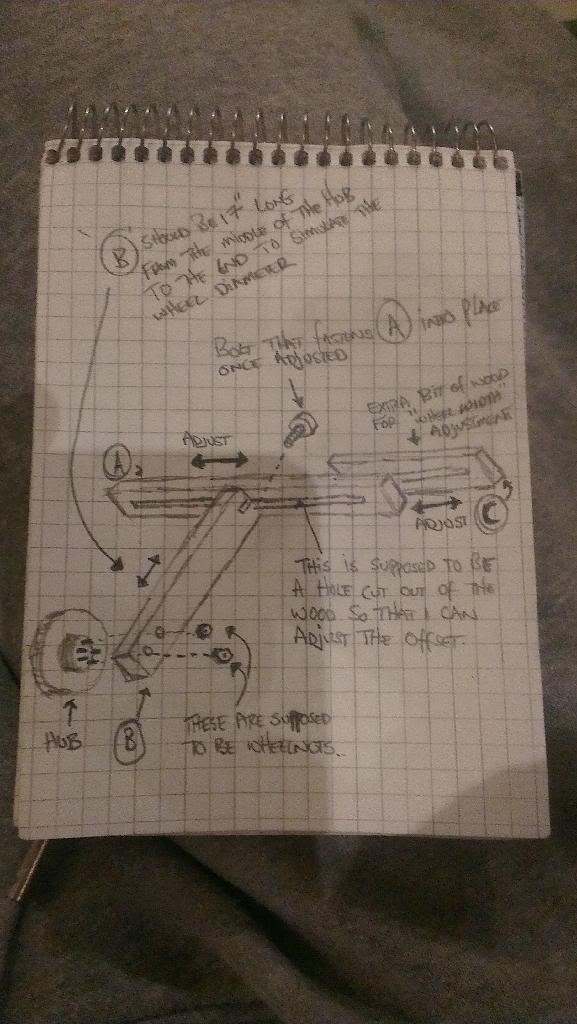 B SHOULD BE 17" LONG
FROM THE MIDDLE OF THE HUB
TO THE END TO SIMULATE THE
WHEEL DIAMETER
BOLT THAT FASTENS A INTO PLACE
ONCE ADJUSTED
EXTRA BIT OF WOOD
FOR "WHEEL WIDTH"
ADJUSTMENT
ADJUST
A
ADJUST
C
THIS IS SUPPOSED TO BE
A HOLE CUT OUT OF THE
WOOD SO THAT I CAN
ADJUST THE OFFSET.
HUB
B
THESE ARE SUPPOSED
TO BE WHEELNUTS..